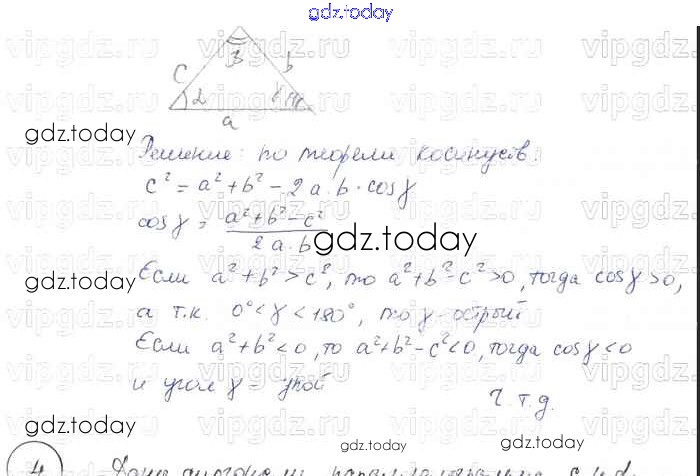 gdz.today
c b
a
gdz.today
Решение: по теореме косинусов:
c² = a² + b² - 2a·b·cosγ
cosγ = a² + b² - c² / 2a·b
gdz.today
Если a² + b² > c², то a² + b² - c² > 0, тогда cosγ > 0,
а т.к. 0° < γ < 180°, то γ - острый
Если a² + b² < 0, то a² + b² - c² < 0, тогда cosγ < 0
и угол γ - тупой
ч.т.д.
gdz.today gdz.today
4